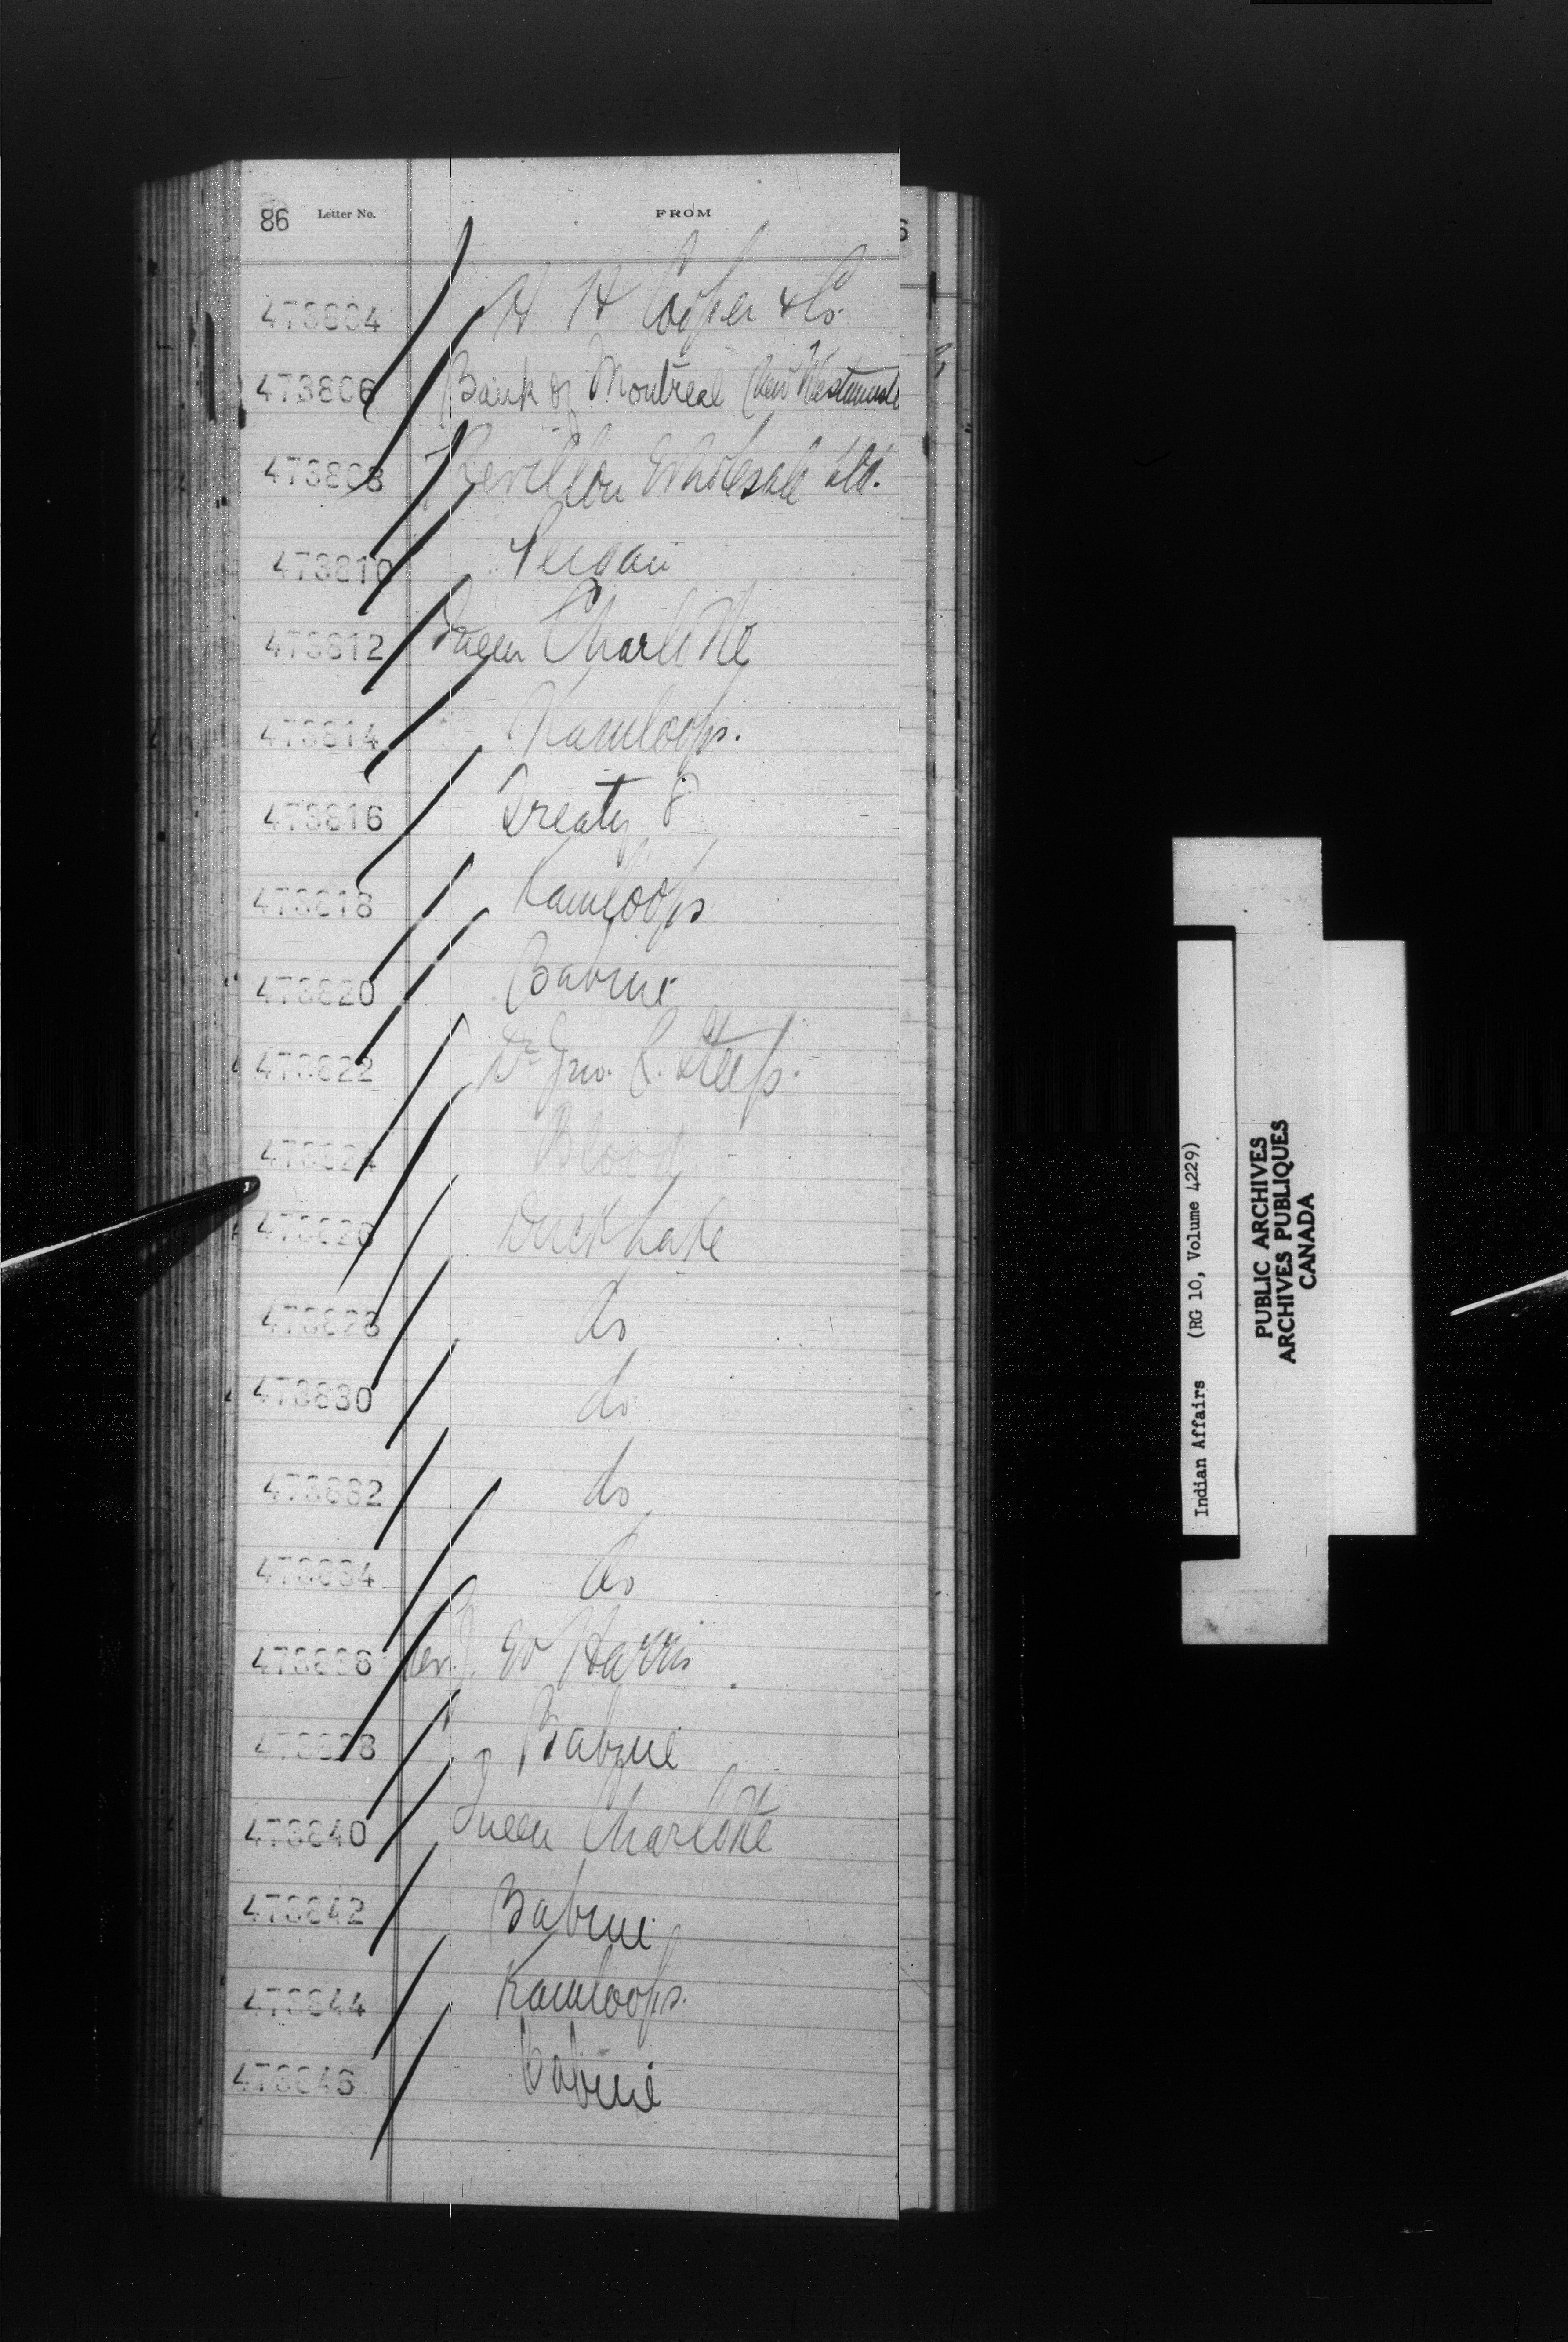 86 Letter No. FROM
473804 H H Cooper & Co.
473806 Bank of Montreal (New Westminste
473808 Revillon Wholesale Ltd.
473810 Peigan
473812 Queen Charlotte
473814 Kamloops.
473816 Treaty 8
473818 Kamloops
473820 Babine
473822 Dr Jno. R. Steep.
473824 Blood
473826 Duck Lake
473828 do
473830 do
473832 do
473834 do
473836 Rev. J. W Harris
473838 Babine
473840 Queen Charlotte
473842 Babine
473844 Kamloops.
473846 Babine
Indian Affairs (RG 10, Volume 4229)
PUBLIC ARCHIVES
ARCHIVES PUBLIQUES
CANADA